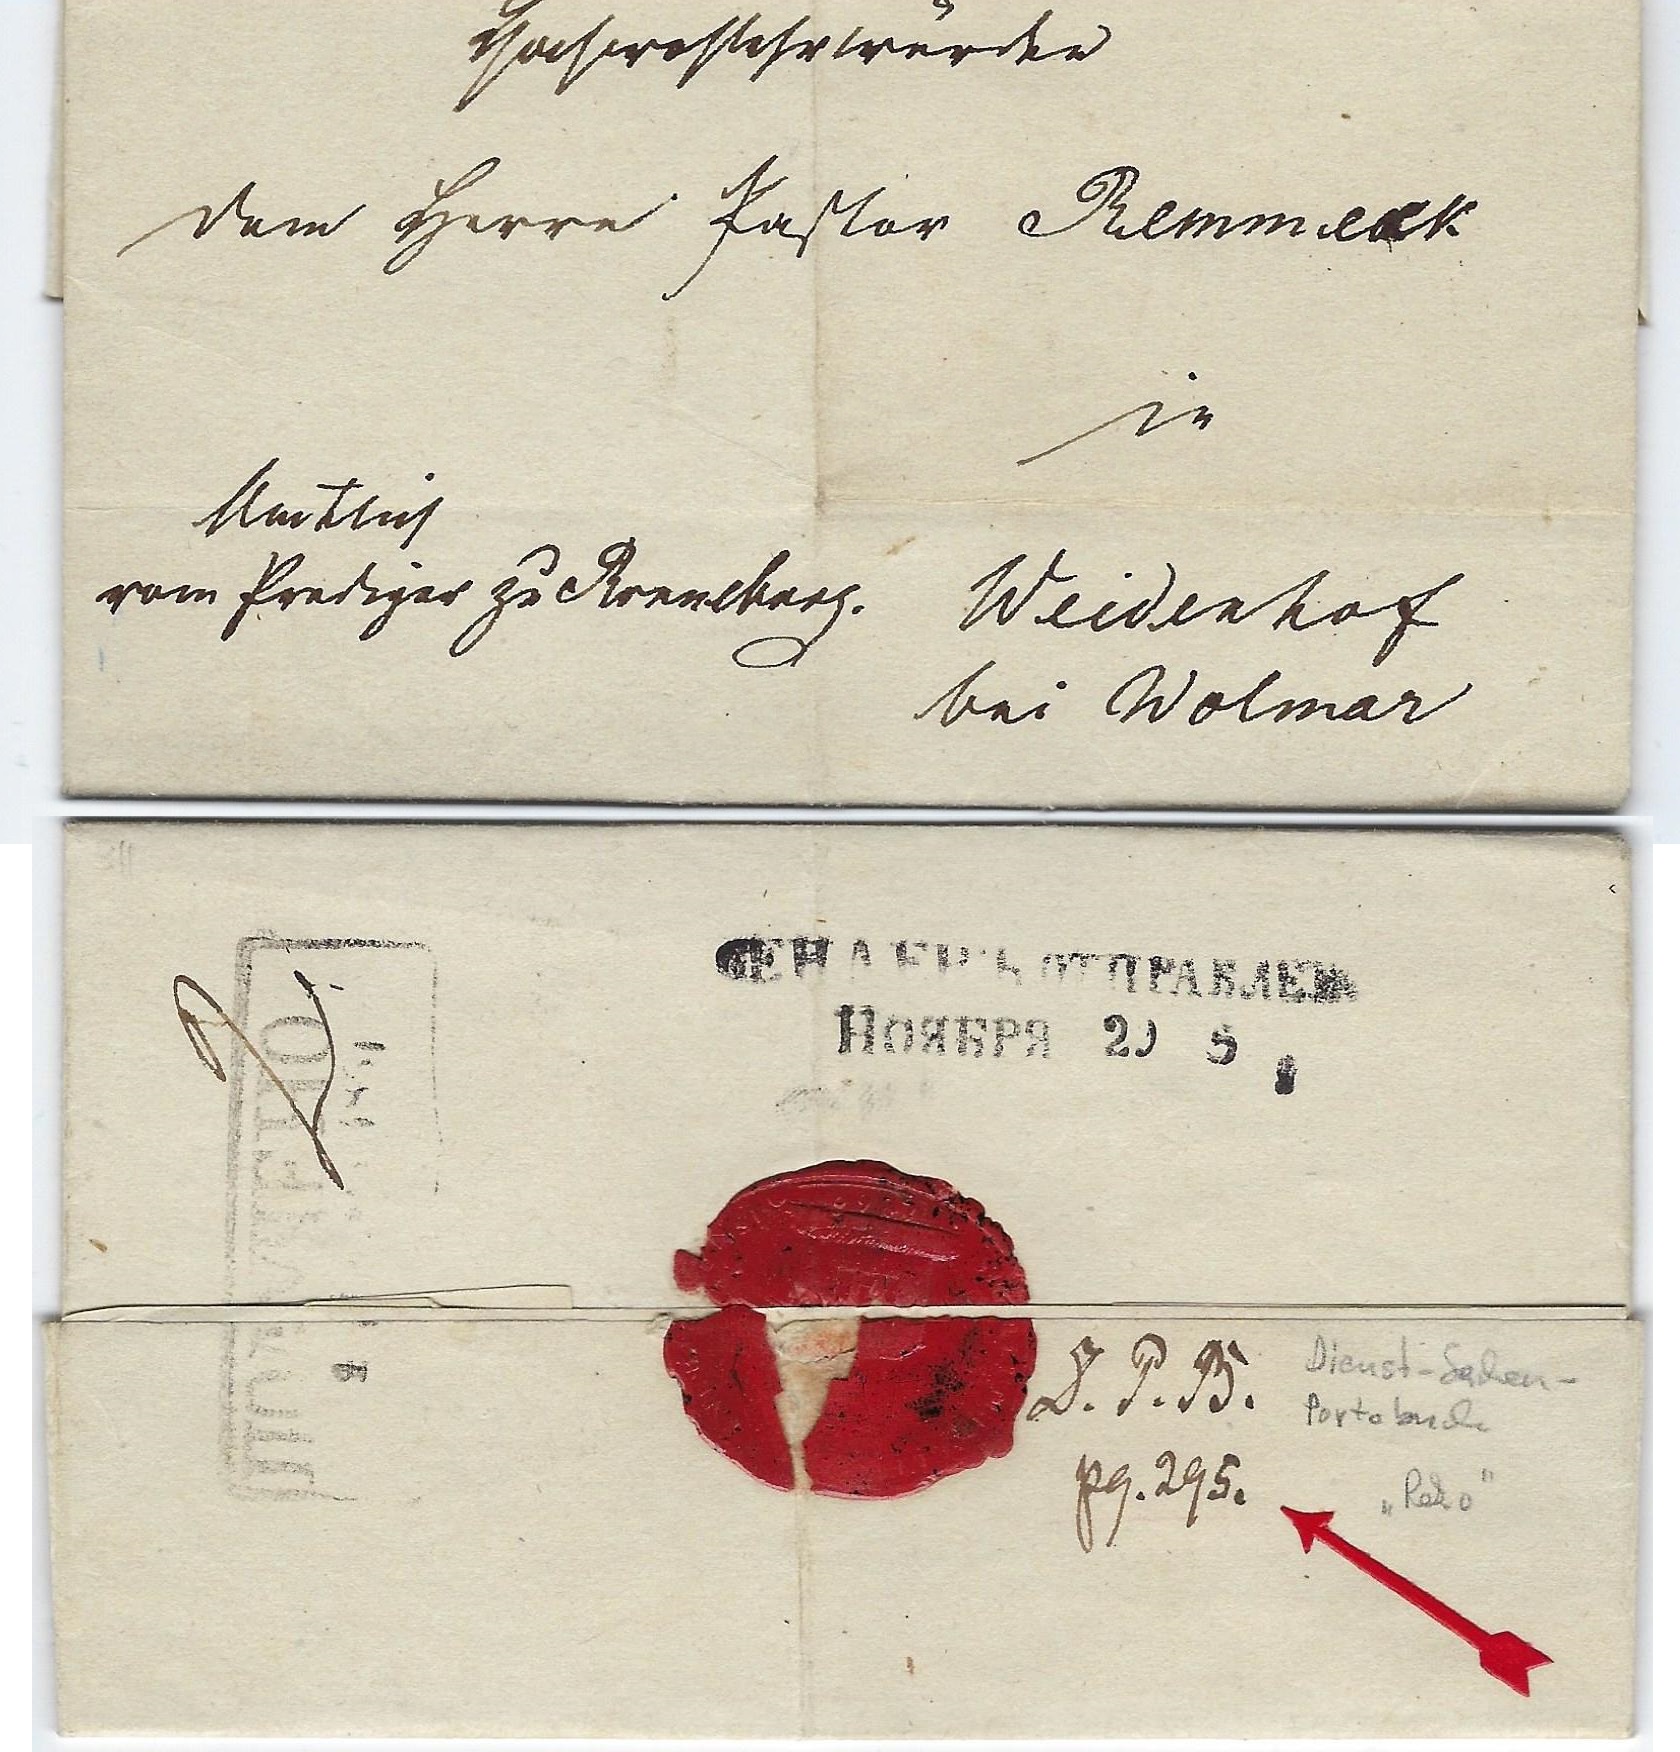 Hochwohlehrwürden
dem Herrn Pastor Remmeck
in
Amtlich
vom Prediger zu Ronneburg.
Weidenhof
bei Wolmar
ОТПРАВЛЕН
НОЯБРЯ 29 5
S. P. B.
pg. 295.
Dienst-Sachen-
Portobuch
"Reko"